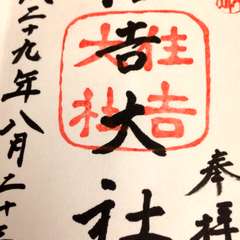 奉拝
吉大社
住吉大社
二十九年八月二十